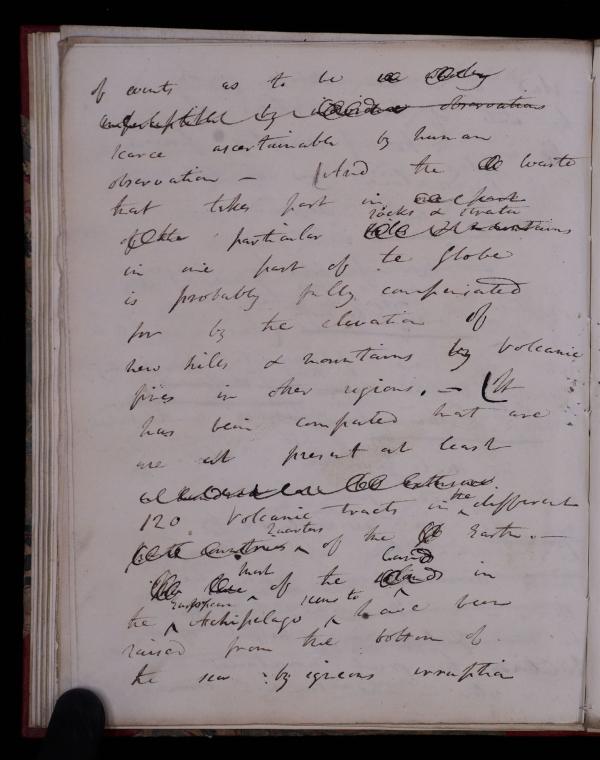 of events as to be
by observation
scarce ascertainable by human
observation – And the waste
that takes part in part
rocks & strata
of the particular mountains
in one part of the Globe
is probably fully compensated
for by the elevation of
new hills & mountains by Volcanic
fires in other regions. – It
has been computed that are
are at present at least
120 Volcanic tracts in the different
quarters
countries of the Earth. –
land
that of the islands in
European seems to
the Archipelago have been
raised from the bottom of
the sea by igneous irruption